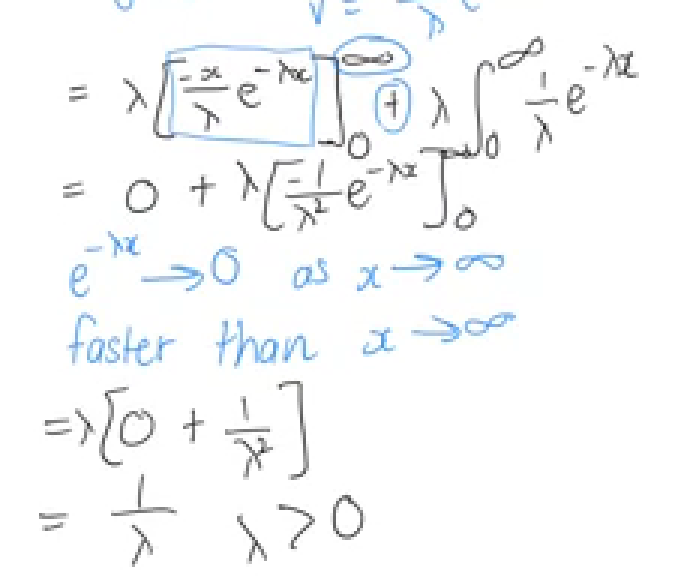 v = /λ
= λ[-x/λ e^{-λx}]_0^∞ + λ∫_0^∞ 1/λ e^{-λx}
= 0 + λ[-1/λ² e^{-λx}]_0^∞
e^{-λx} → 0 as x → ∞
faster than x → ∞
= λ[0 + 1/λ²]
= 1/λ λ > 0